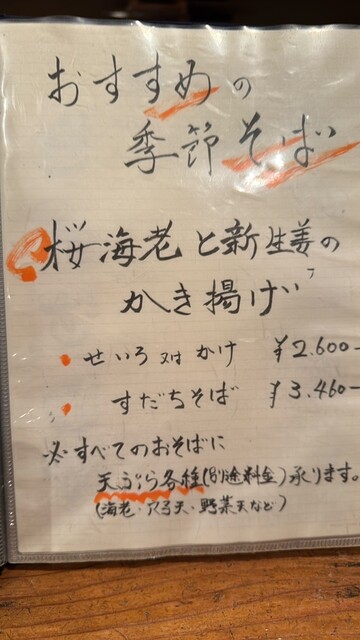 おすすめの
季節そば
桜海老と新生姜の
かき揚げ
せいろ 又は かけ ¥2.600-
すだちそば ¥3.460-
※すべてのおそばに
天ぷら各種(別途料金)承ります。
(海老・穴子天・野菜天など)